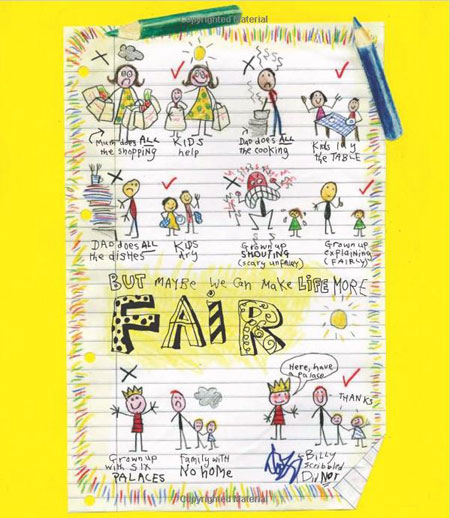 Copyrighted Material
Mum does ALL
the shopping
KIDS
help
Dad does ALL
the cooking
Kids lay
the TABLE
DAD does ALL
the dishes
KIDS
dry
Grown up
SHOUTING
(scary unfairy)
Grown up
explaining
(FAIRLY)
BUT MAYBE WE CAN MAKE LIFE MORE
FAIR
Here, have
a palace
THANKS
Grown up
with SIX
PALACES
family with
NO HOME
BILLY
scribbled
I DID NOT
Copyrighted Material